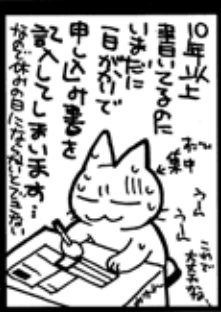 10年以上
書いてるのに
いまだに
一日がかりで
申し込み書を
記入してしまいます…
なので休みの日にならないとできない
集中
うー
うー
これで
大丈夫かな、